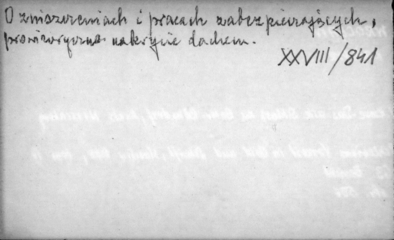 O zniszczeniach i pracach zabezpieczających,
prowizoryczne nakrycie dachem.
XXVIII/841